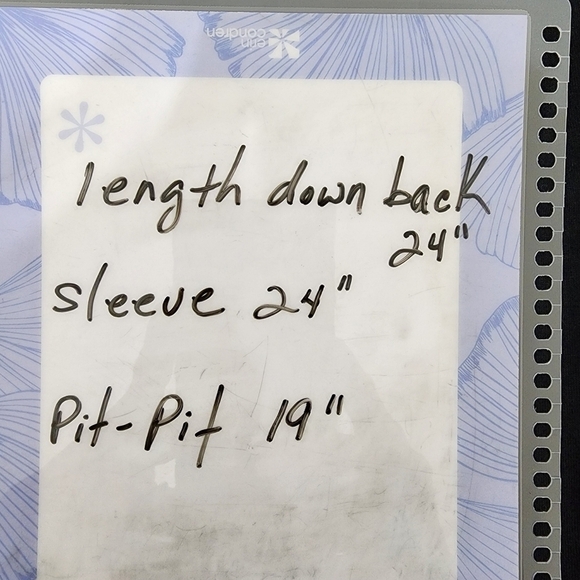 erin condren
length down back
24"
sleeve 24"
Pit-Pit 19"